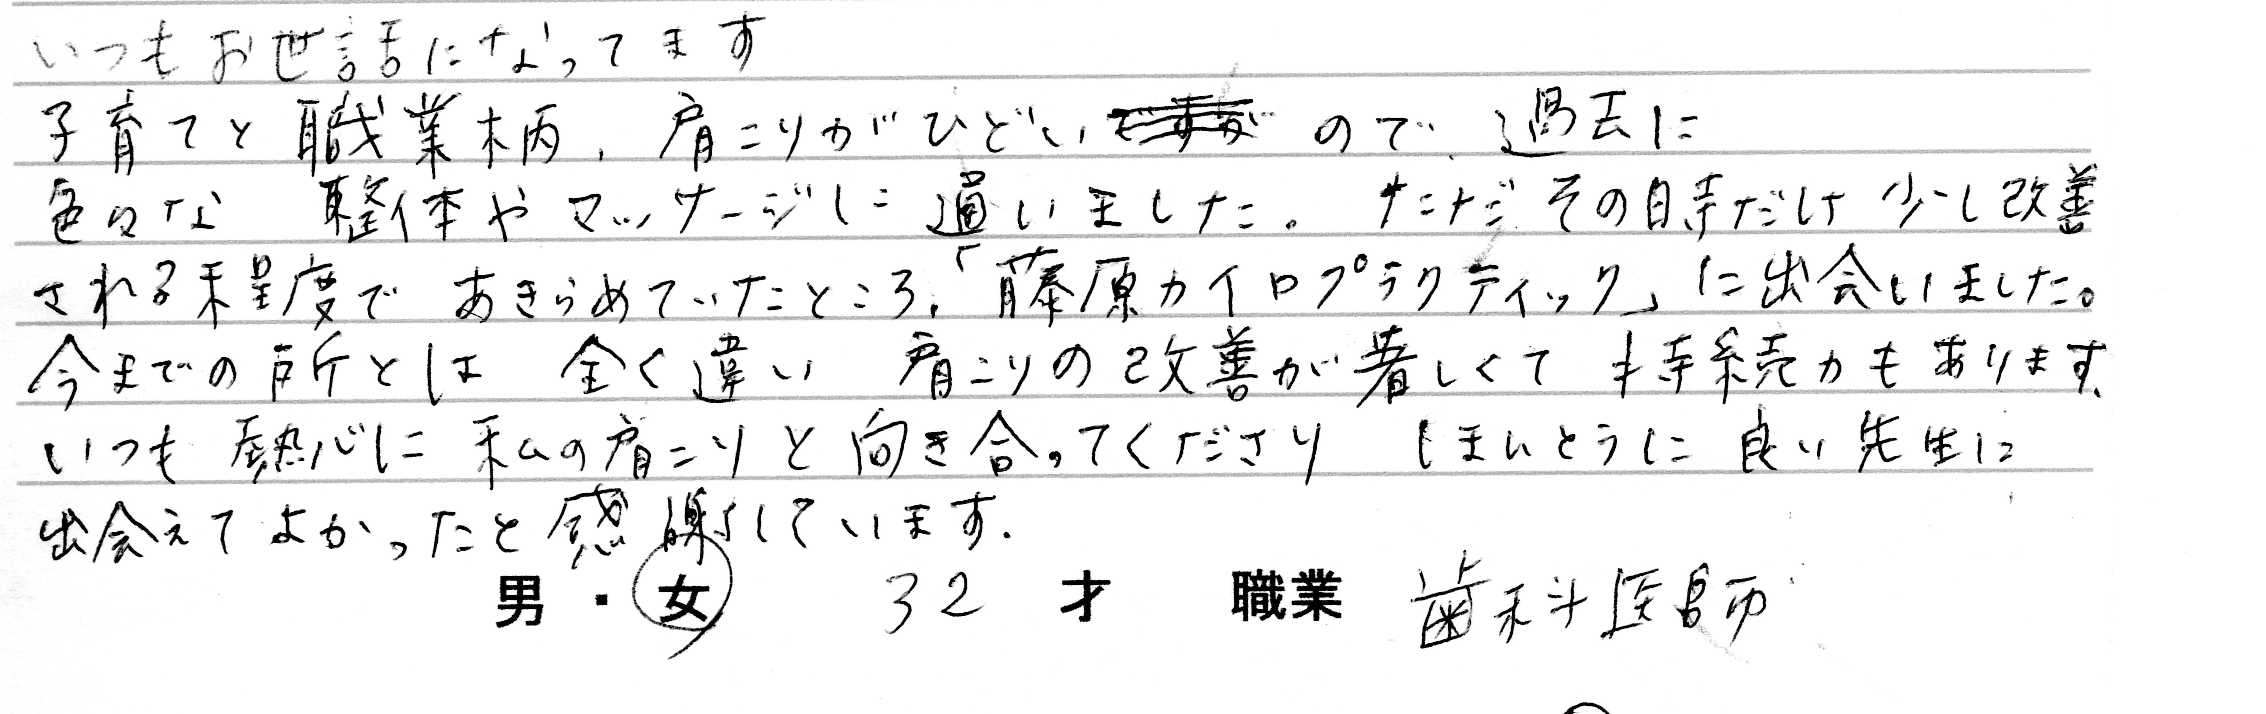 いつもお世話になってます
子育てと職業柄、肩こりがひどいですがので、過去に
色々な 整体やマッサージに通いました。ただその時だけ少し改善
される程度であきらめていたところ、「藤原カイロプラクティック」に出会いました。
今までの所とは 全く違い 肩こりの改善が著しくて 持続力もあります。
いつも熱心に 私の肩こりと向き合ってくださり ほんとうに良い先生に
出会えてよかったと感謝しています。
男・女 32 才 職業 歯科医師